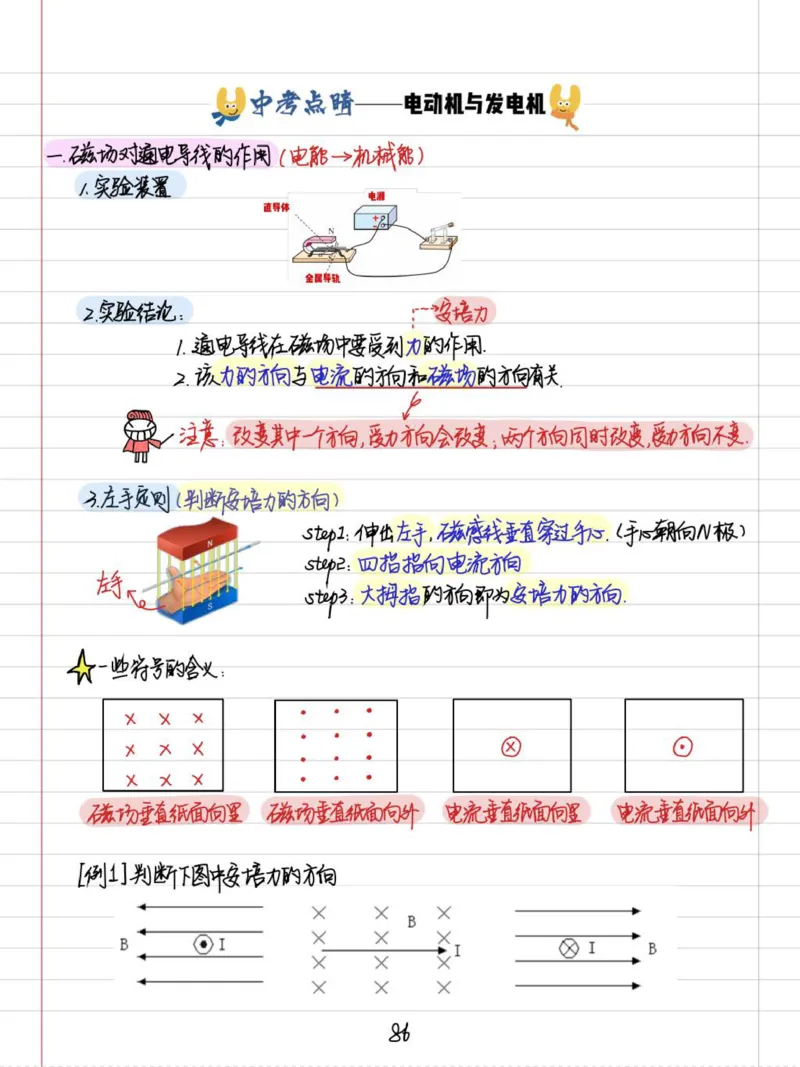 中考点睛——电动机与发电机
一.磁场对通电导线的作用(电能→机械能)
1.实验装置
电源
直导体
N
+
-
金属导轨
2.实验结论:
安培力
1.通电导线在磁场中要受到力的作用.
2.该力的方向与电流的方向和磁场的方向有关.
注意:改变其中一个方向,受力方向会改变;两个方向同时改变,受力方向不变.
3.左手定则(判断安培力的方向)
step1:伸出左手,磁感线垂直穿过手心.(手心朝向N极)
step2:四指指向电流方向
step3:大拇指的方向即为安培力的方向.
N
左手
S
一些符号的含义:
磁场垂直纸面向里 磁场垂直纸面向外 电流垂直纸面向里 电流垂直纸面向外
[例1]判断下图中安培力的方向
B I B I I B
86